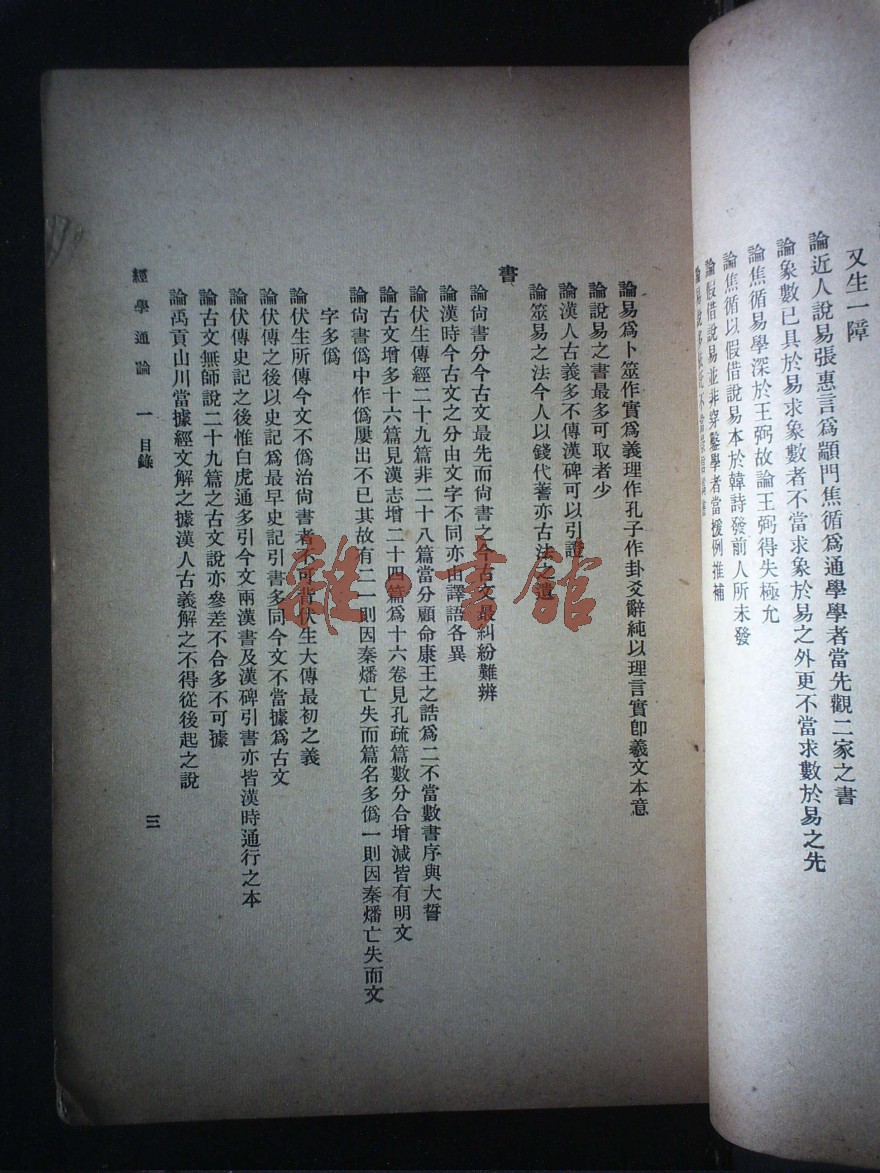 又生一障
論近人說易張惠言爲顓門焦循爲通學學者當先觀二家之書
論象數已具於易求象數者不當求象於易之外更不當求數於易之先
論焦循易學深於王弼故論王弼得失極允
論焦循以假借說易本於韓詩發前人所未發
論假借說易並非穿鑿學者當援例推補
論易爲卜筮作實爲義理作孔子作卦爻辭純以理言實卽羲文本意
論說易之書最多可取者少
論漢人古義多不傳漢碑可以引證
論筮易之法今人以錢代蓍亦古法之遺
書
論尙書分今古文最先而尙書之今古文最糾紛難辨
論漢時今古文之分由文字不同亦由譯語各異
論伏生傳經二十九篇非二十八篇當分顧命康王之誥爲二不當數書序與大誓
論古文增多十六篇見漢志增二十四篇爲十六卷見孔疏篇數分合增減皆有明文
論尙書僞中作僞屢出不已其故有二一則因秦燔亡失而篇名多僞一則因秦燔亡失而文
字多僞
論伏生所傳今文不僞治尙書者不可背伏生大傳最初之義
論伏傳之後以史記爲最早史記引書多同今文不當據爲古文
論伏傳史記之後惟白虎通多引今文兩漢書及漢碑引書亦皆漢時通行之本
論古文無師說二十九篇之古文說亦參差不合多不可據
論禹貢山川當據經文解之據漢人古義解之不得從後起之說
經學通論 一 目錄
三
雜·書館